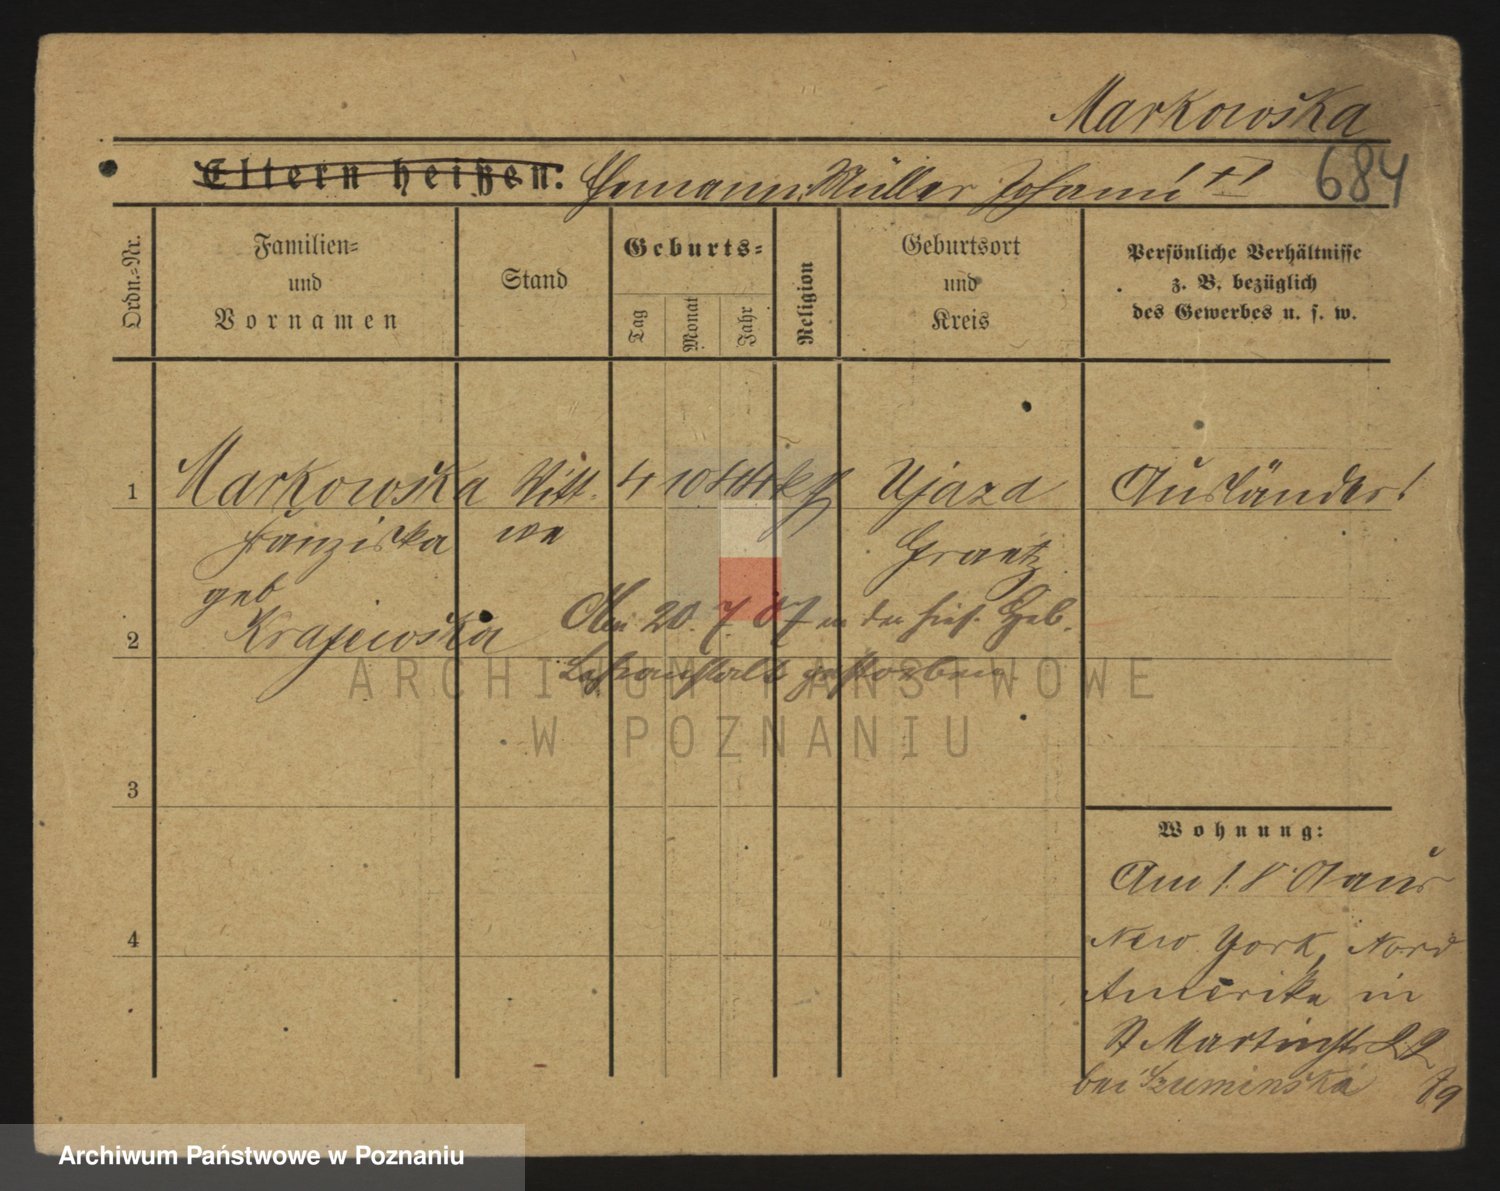 Markowska
684
Eltern heißen: Ehemann: Müller Johann
Ordn.-Nr.
Familien-
und
Vornamen
Stand
Geburts-
Tag
Monat
Jahr
Religion
Geburtsort
und
Kreis
Persönliche Verhältnisse
z. B. bezüglich
des Gewerbes u. s. w.
1 Markowska Witt- 4 10 Ujazd Ausländer!
Franziska we Graetz
geb
Krajewska
2 Am 20. 7. 07 in der hies. Heb.
Lehranstalt gestorben.
3
4
Wohnung:
Am 1. 8. aus
New York, Nord
Amerika in
St Martinstr 22
bei Szuminska
ARCHIWUM PAŃSTWOWE
W POZNANIU
Archiwum Państwowe w Poznaniu